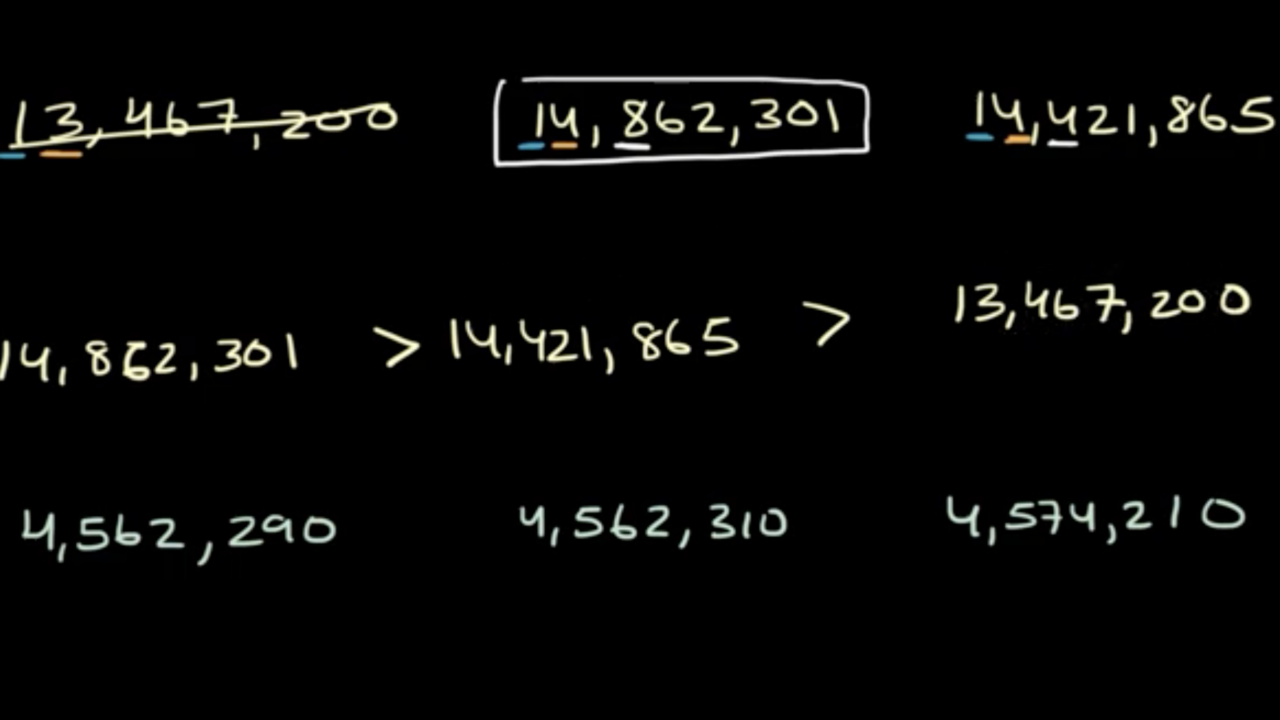 13,467,200 14,862,301 14,421,865
14,862,301 > 14,421,865 > 13,467,200
4,562,290 4,562,310 4,574,210